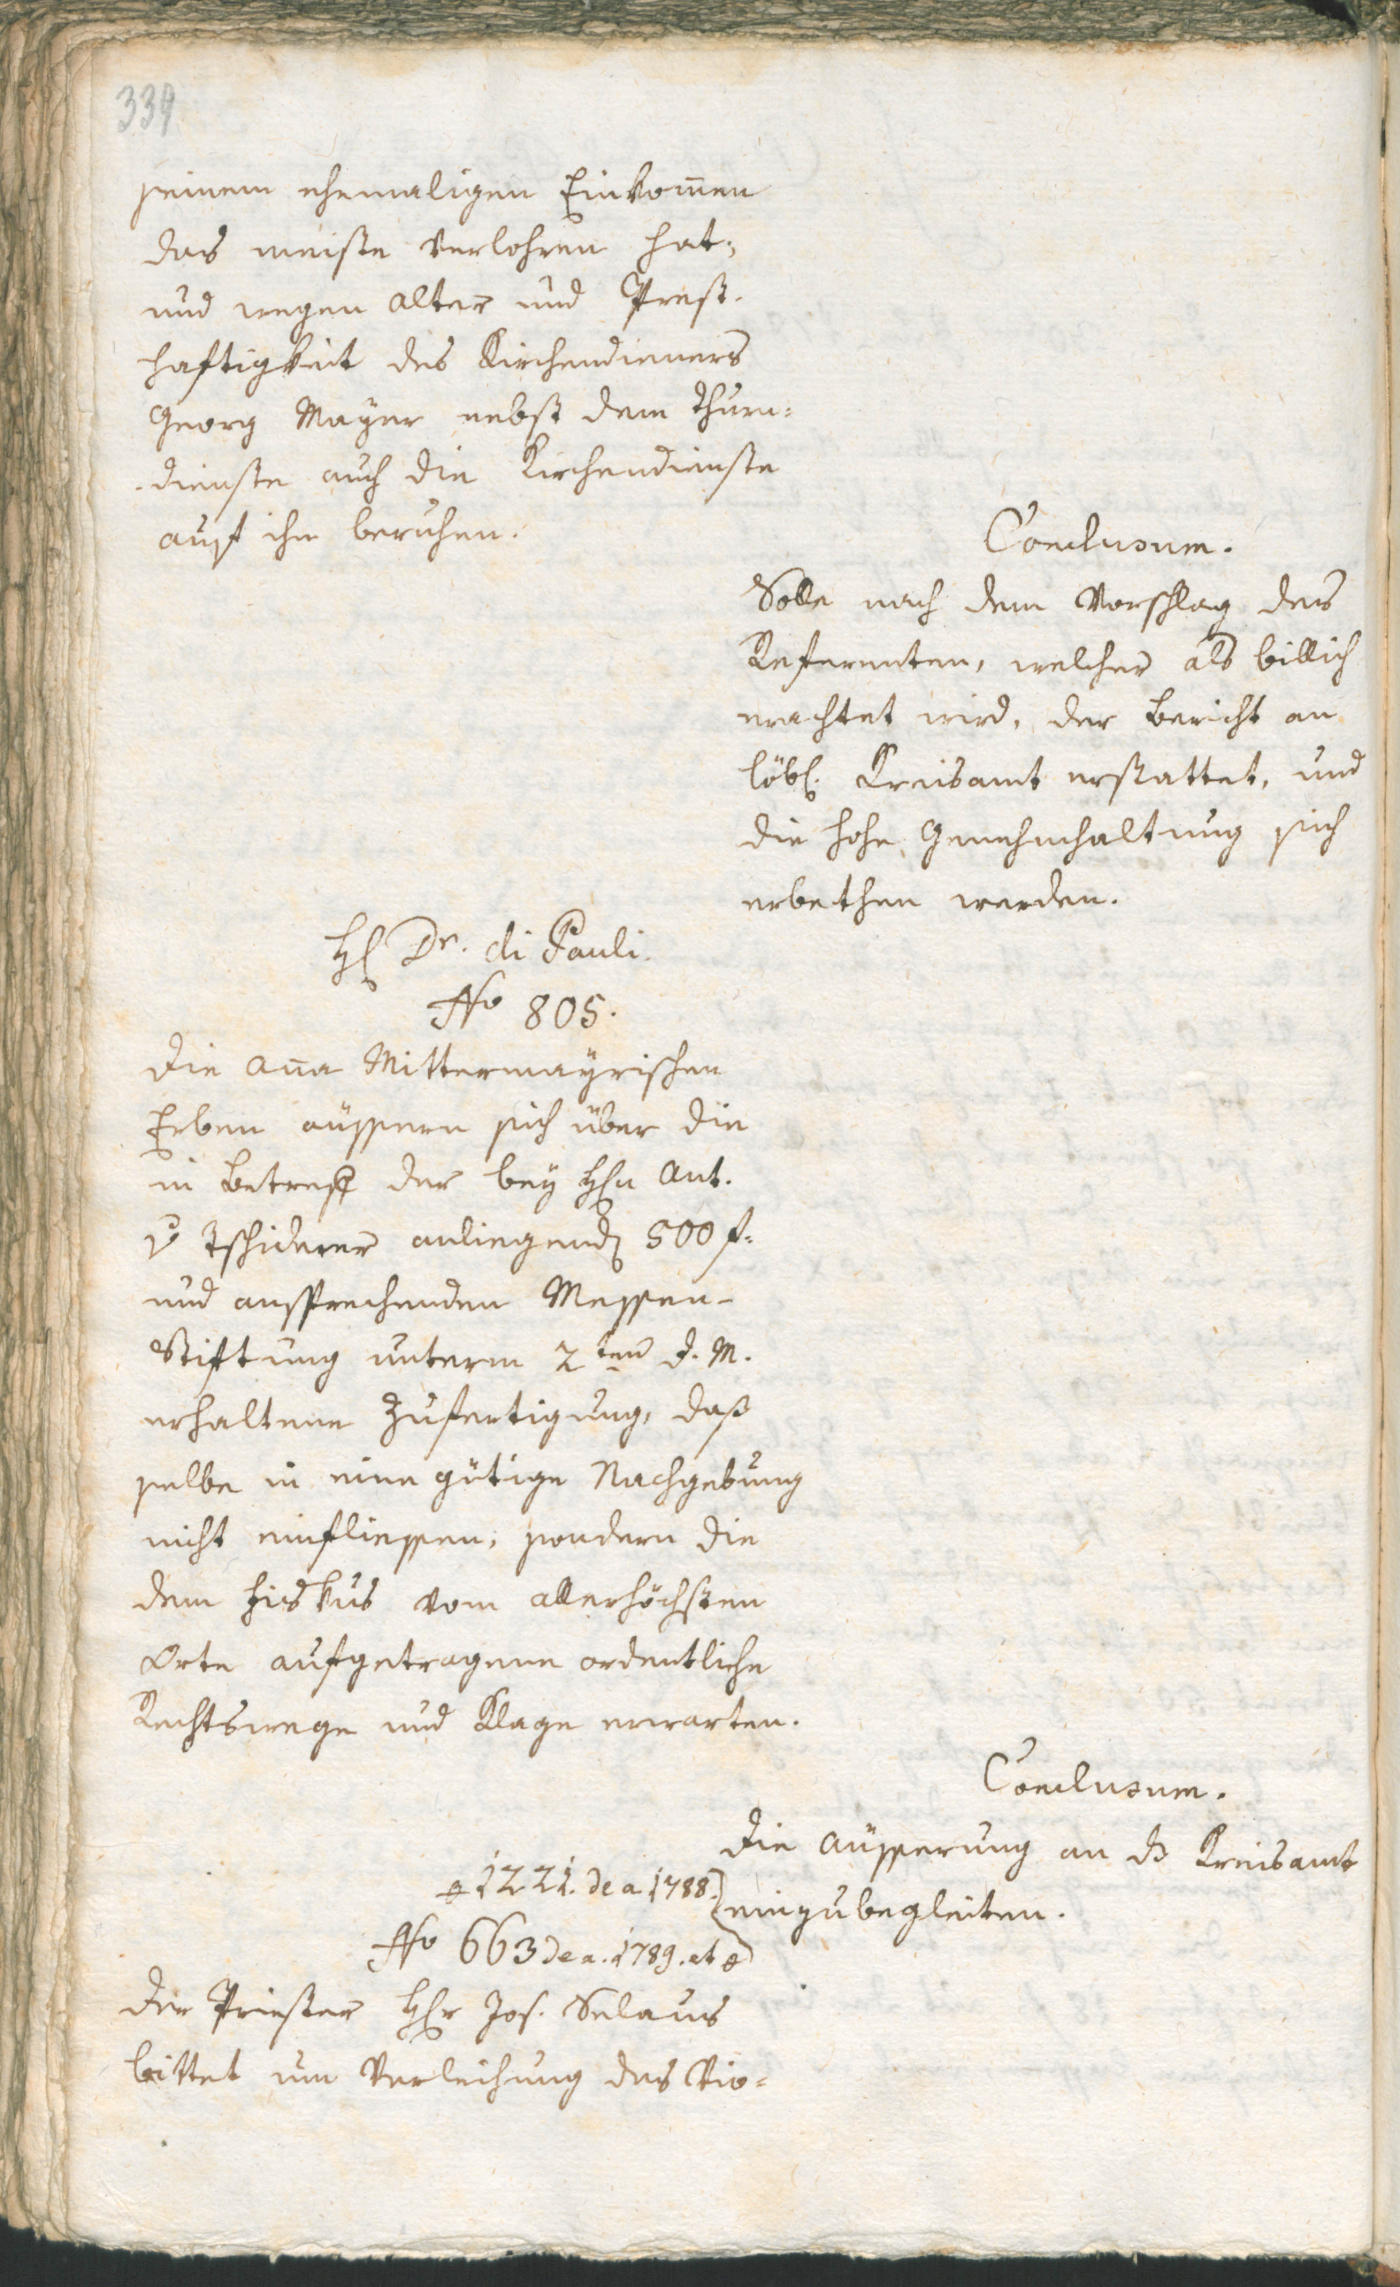 339
seinem ehemaligen Einkom̄en
das meiste verlohren hat,
und wegen alter und Prest-
haftigkeit des Kirchendieners
Georg Mayer nebst dem Thurn-
dienste auch die Kirchendienste
auf ihn beruhen.
Conclusum.
Solle nach dem Vorschlag des
Referenten, welcher als billich
erachtet wird, der Bericht an
löbl. Kreisamt erstattet, und
die hohe Genehmhaltung sich
erbethen werden.
H Dr. di Pauli.
No 805.
Die An̄a Mittermayrischen
Erben äussern sich über die
in Betreff der bey Hhn Ant.
v Tschiderer anliegend 500 f.
und ansprechenden Messen-
Stiftung unterm 2ten d. M.
erhaltene Zufertigung, daß
selbe in eine gütige Nachgebung
nicht einfliessen, sondern die
dem Fiskus vom allerhöchsten
Orte aufgetragene ordentliche
Rechtswege und Klage erwarten.
Conclusum.
Die Äusserung an das Kreisamt
einzubegleiten.
1221. de a 1788.
No 663 de a. 1789. et
Der Priester Hhr Jos. Selaus
bittet um Verleihung des Vio-